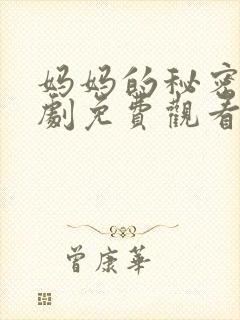 妈妈的秘密
劇免費觀看
曾康華